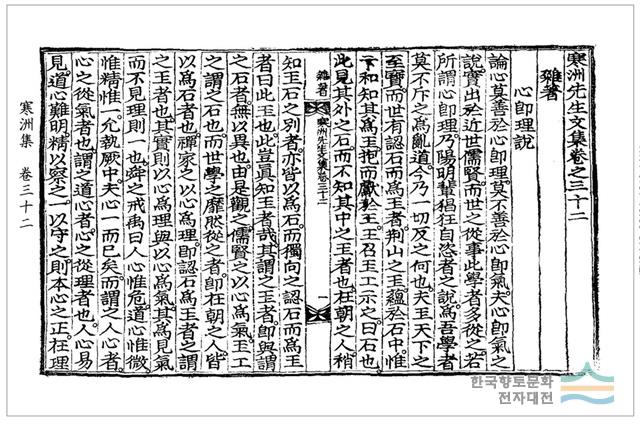 寒洲先生文集卷之三十二
雜著
心卽理說
論心莫善於心卽理莫不善於心卽氣夫心卽氣之
說實出於近世儒賢而世之從事此學者多從之若
所謂心卽理乃陽明輩猖狂自恣者之說爲吾學者
莫不斥之爲亂道今乃一切反之何也夫玉天下之
至寶而世有認石而爲玉者荊山之玉蘊於石中惟
卞和知其爲玉抱而獻於王王召玉工示之曰石也
此見其外之石而不知其中之玉者也在朝之人稍
雜著 寒洲先生文集卷三十二 一
知玉石之別者亦皆以爲石而獨向之認石而爲玉
者曰此玉也此豈眞知玉者哉其謂之玉者卽與謂
之石者無以異也由是觀之儒賢之以心爲氣玉工
之謂之石也而世學之靡然從之者卽在朝之人皆
以爲石者也禪家之以心爲理卽認石爲玉者之謂
之玉者也其實則以心爲理與以心爲氣其爲見氣
而不見理則一也舜之戒禹曰人心惟危道心惟微
惟精惟一允執厥中夫心一而已矣而謂之人心者
心之從氣者也謂之道心者心之從理者也人心易
見道心難明精以察之一以守之則本心之正在理
寒洲集 卷三十二
한국향토문화
전자대전